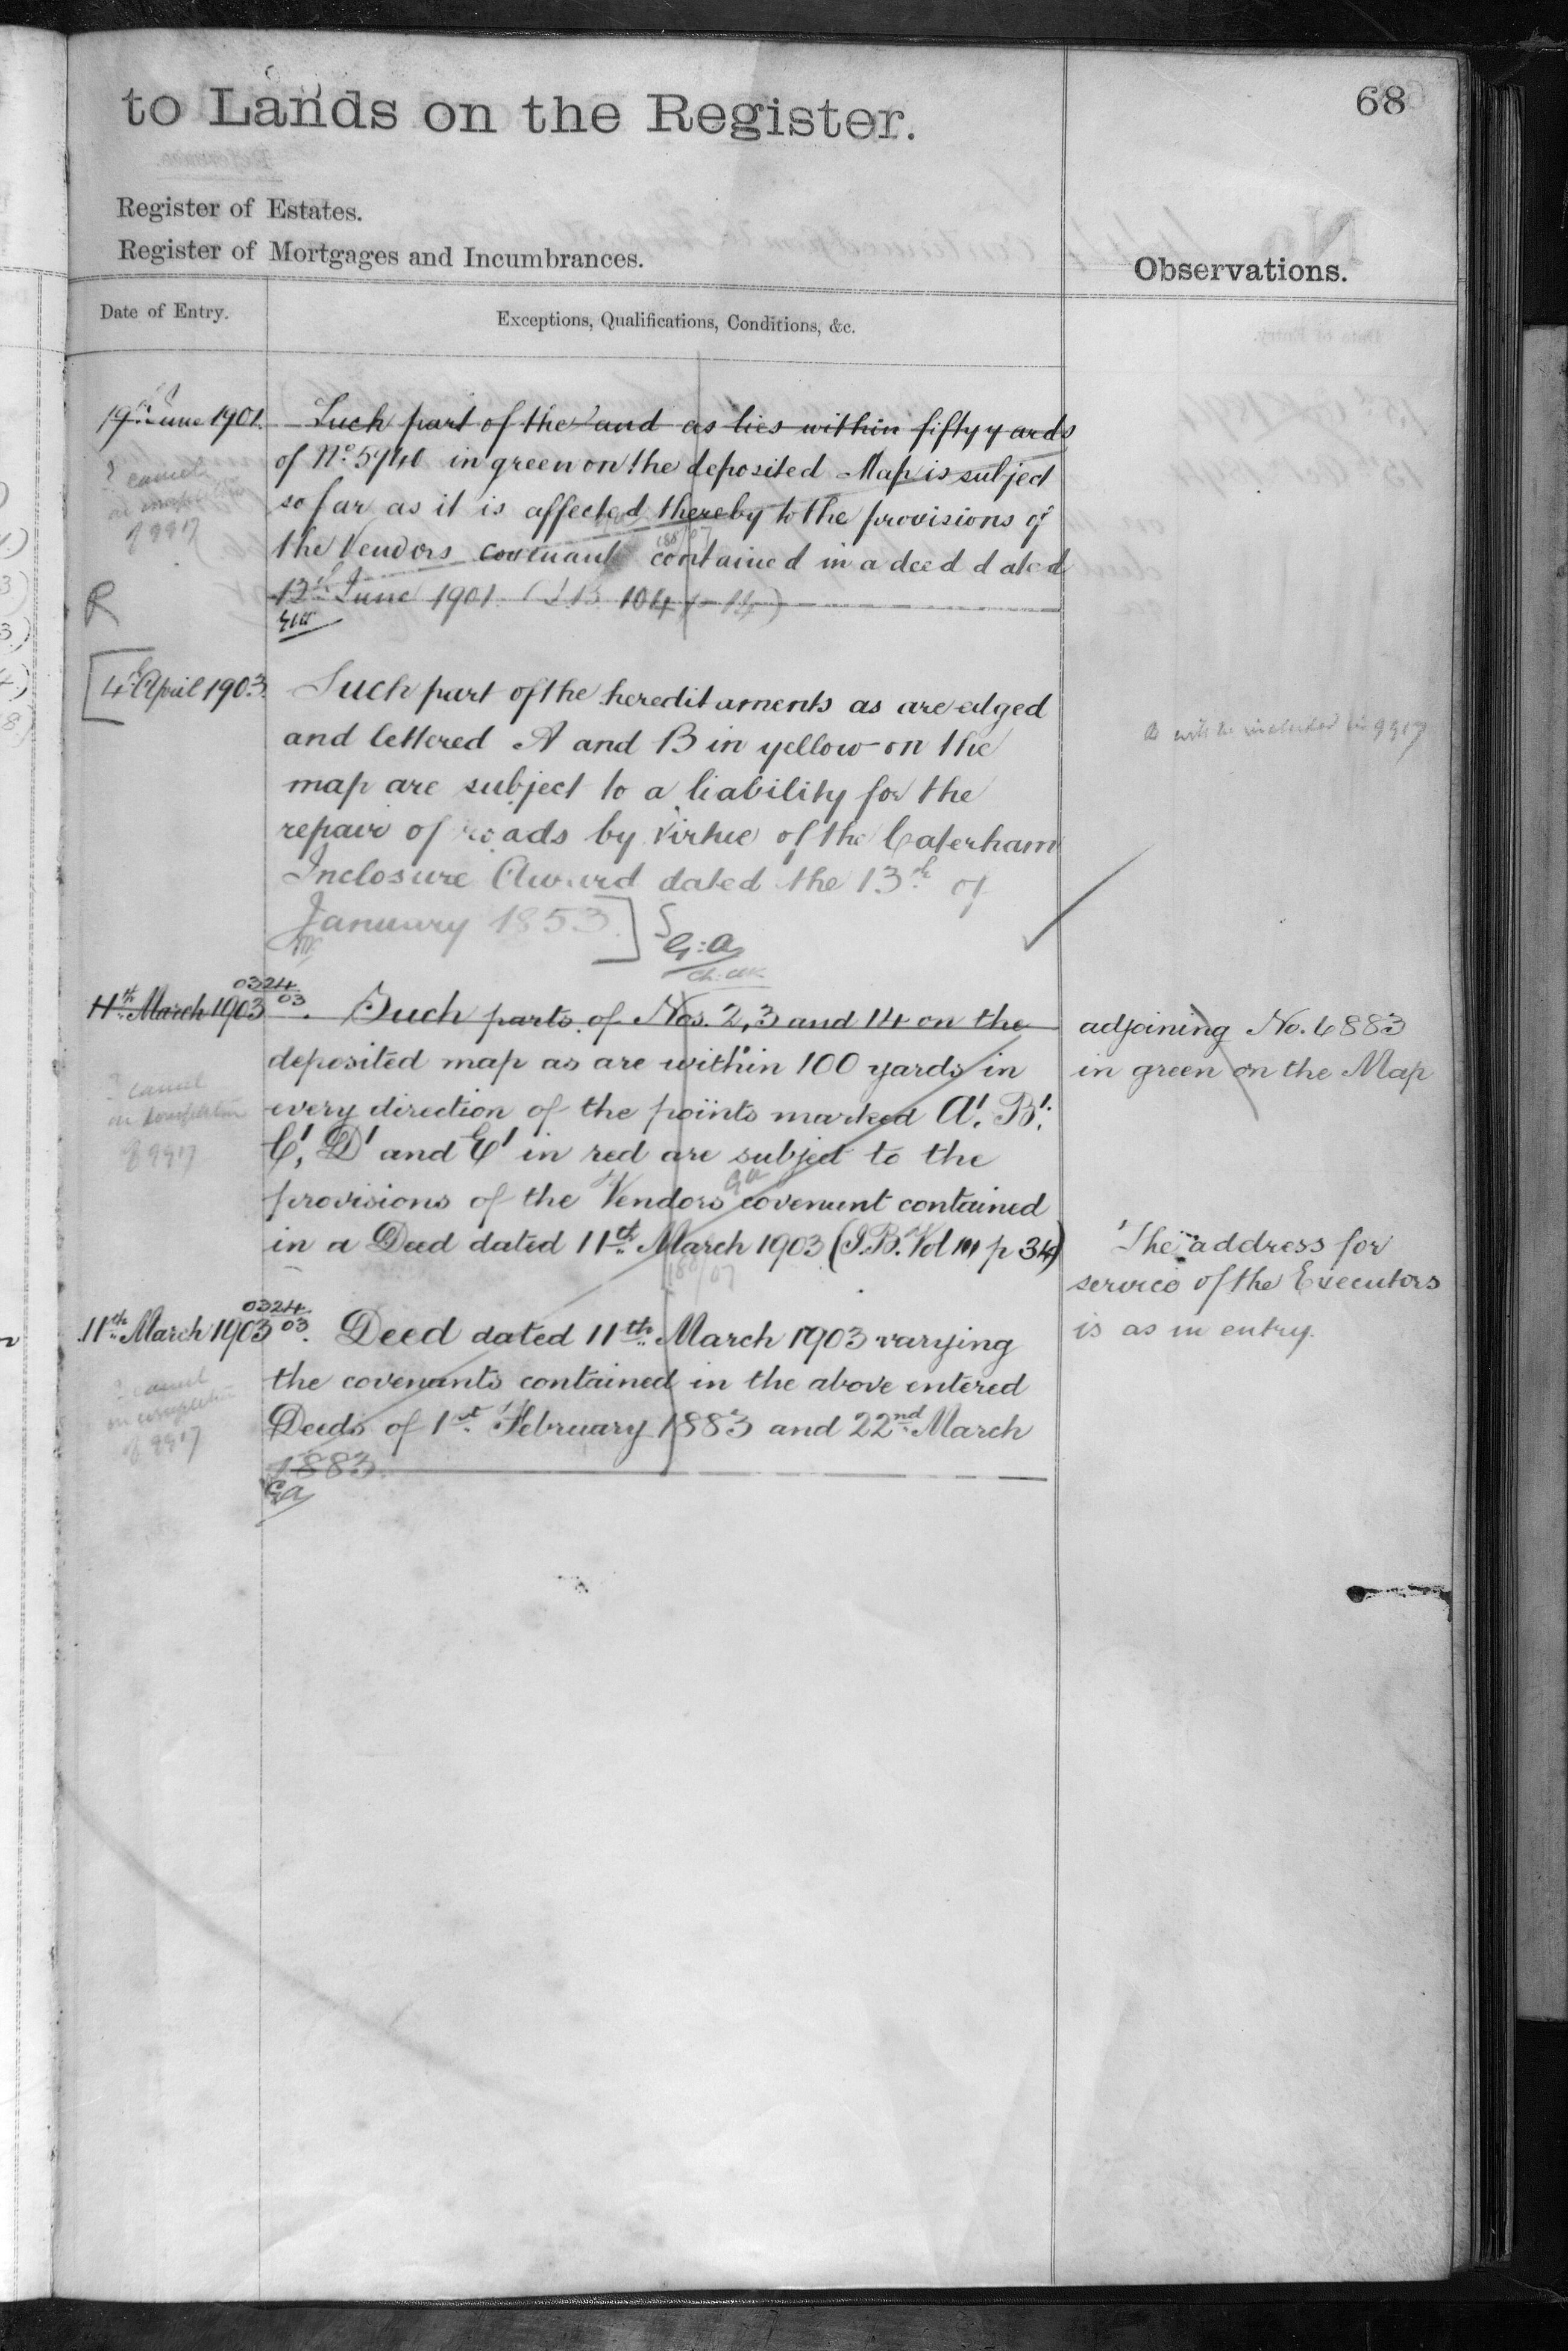 to Lands on the Register.
68
Register of Estates.
Register of Mortgages and Incumbrances.
Observations.
Date of Entry.
Exceptions, Qualifications, Conditions, &c.
19th June 1901. Such part of the land as lies within fifty yards
of No. 5940 in green on the deposited Map is subject
so far as it is affected thereby to the provisions of
the Vendors covenant contained in a deed dated
13th June 1901 (I.B. 104 p 14)
? cancel
on completion
of 9917
188/07
R
4th April 1903. Such part of the hereditaments as are edged
and lettered A and B in yellow on the
map are subject to a liability for the
repair of roads by virtue of the Caterham
Inclosure Award dated the 13th of
January 1853.
G:A
B will be included in 9917
11th March 1903 0324/03. Such parts of Nos. 2, 3 and 14 on the
deposited map as are within 100 yards in
every direction of the points marked A'. B'.
C', D' and E' in red are subject to the
provisions of the Vendors covenant contained
in a Deed dated 11th March 1903 (I.B. Vol 111 p 34)
? cancel
on completion
of 9917
GA
188/07
adjoining No. 6883
in green on the Map
The address for
service of the Executors
is as in entry.
11th March 1903 0324/03. Deed dated 11th March 1903 varying
the covenants contained in the above entered
Deeds of 1st February 1883 and 22nd March
1883.
GA
? cancel
on completion
of 9917